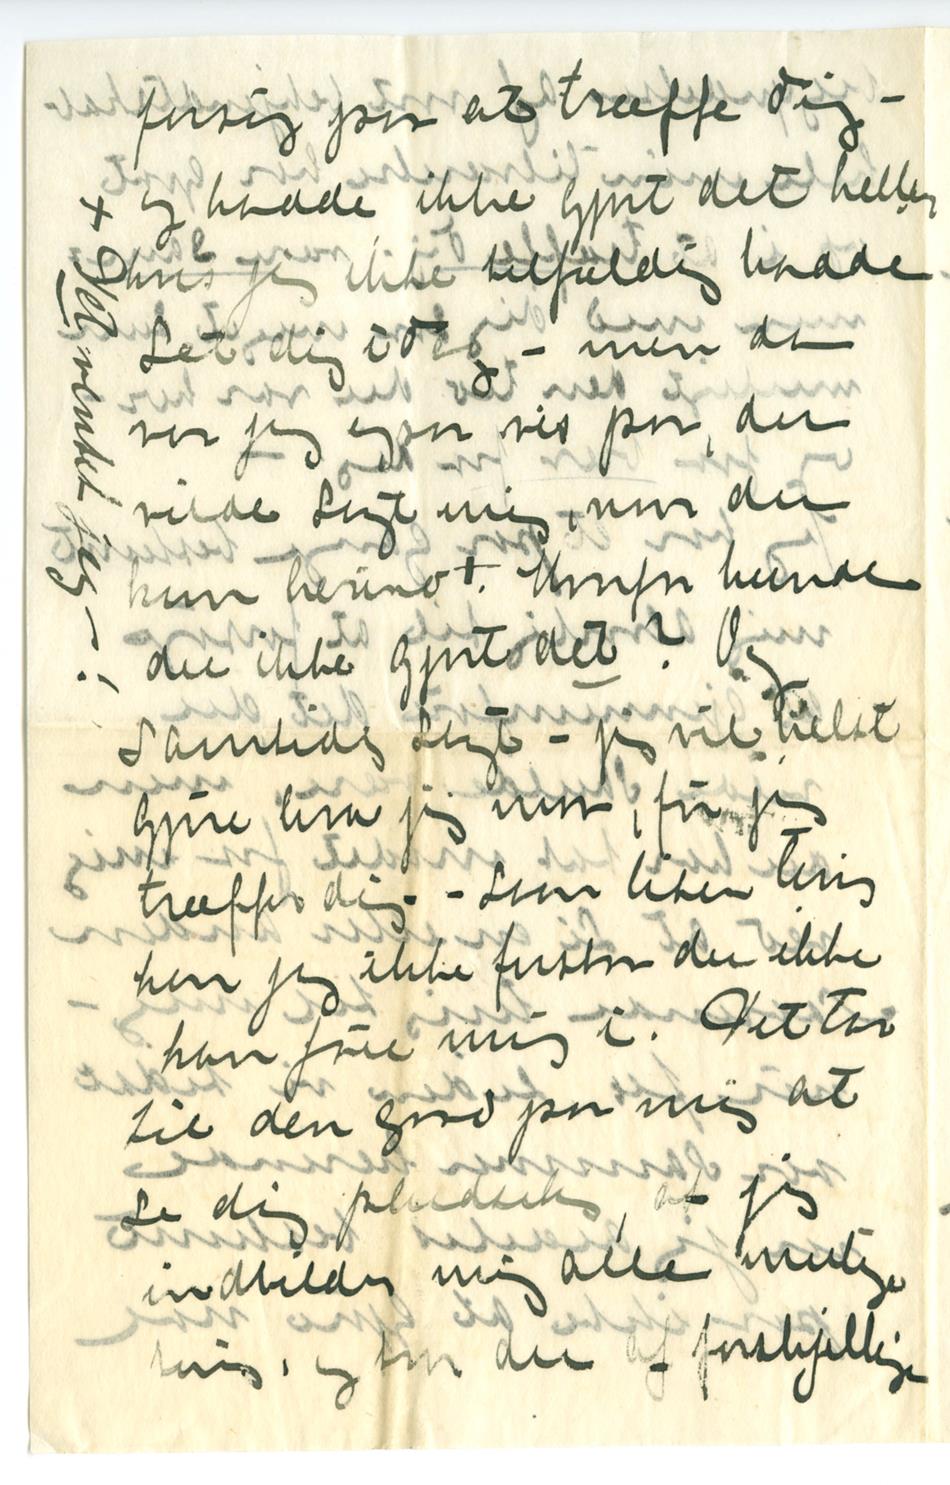 forsøg paa at træffe dig –
og havde ikke gjort det heller,
hvis jeg ikke tilfældig havde
set dig idag – men da
var jeg ogsaa vis paa, du
vilde søgt mig, naar du
kun herind +. Hvorfor kunde
du ikke gjort det? Og
samtidig søgt – jeg vil helst
gjøre hvad jeg maa, før jeg
træffer dig – saan liten ting
kan jeg ikke forstaa du ikke
kan føie mig i. Det tar
til den grad paa mig at
se dig pludselig, at jeg
indbilder mig alle mulige
ting, og tror du af forskjellige
+ Det ventet jeg – !